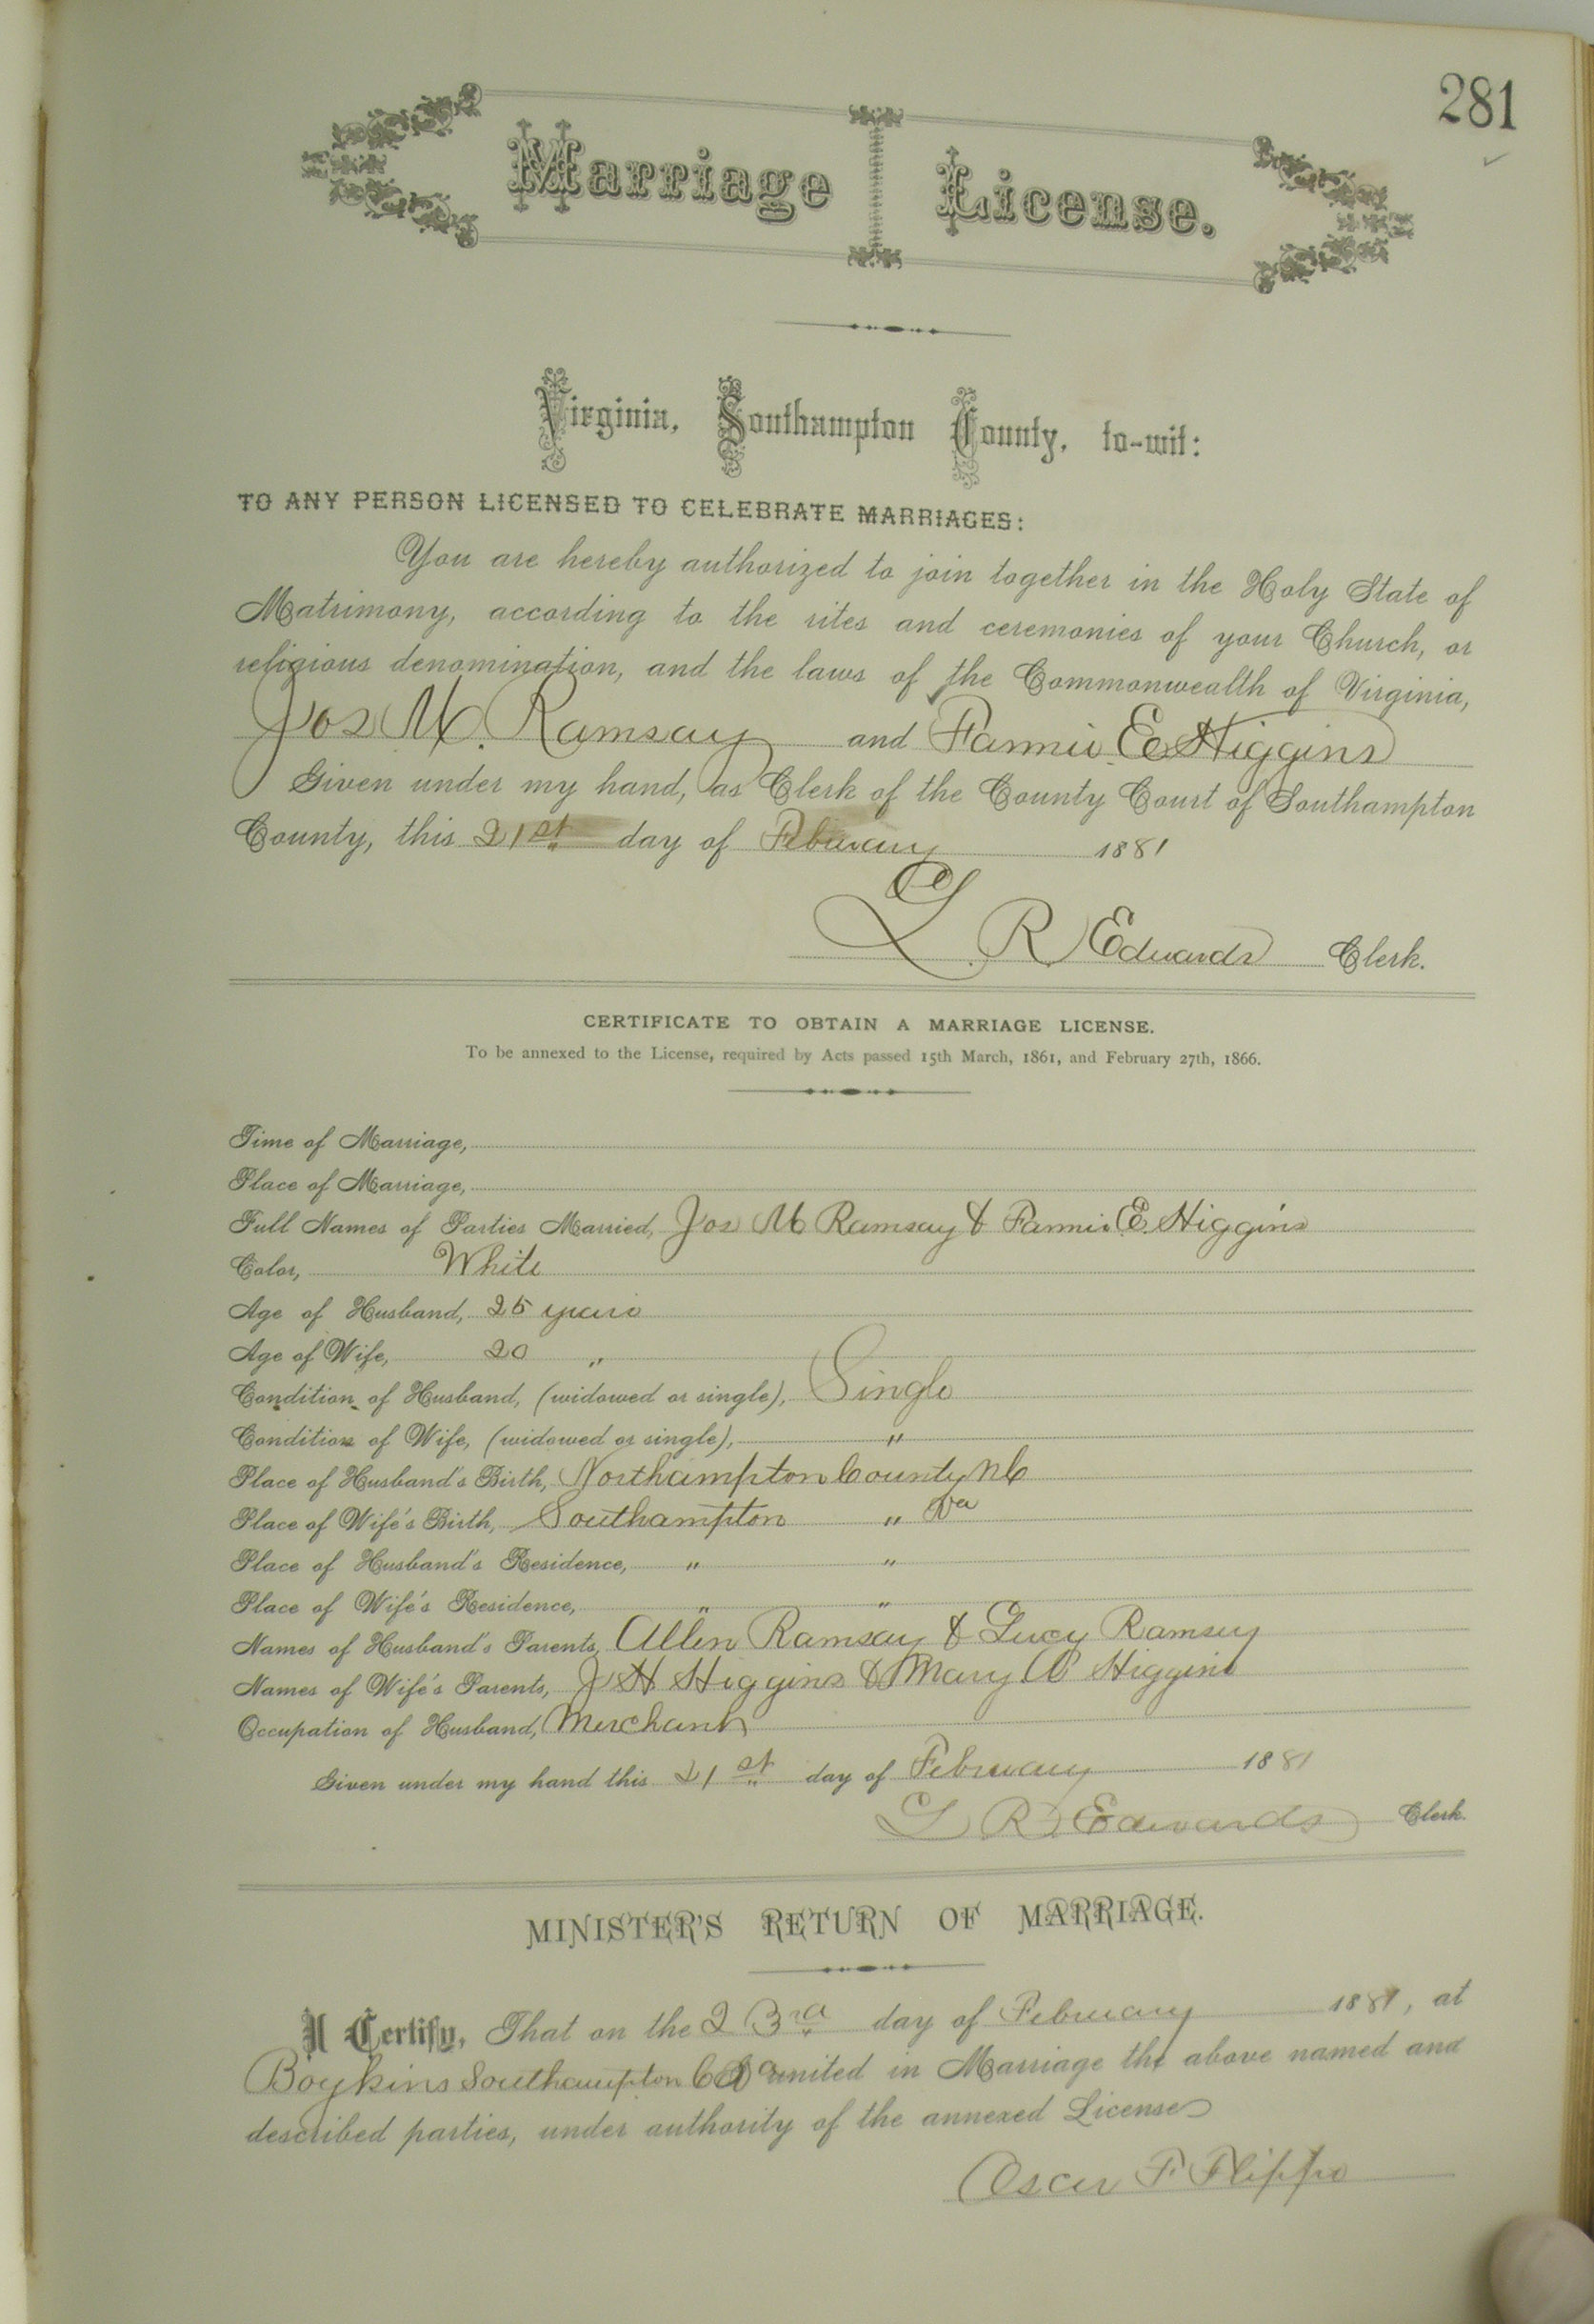 281
Marriage License.
Virginia, Southampton County, to-wit:
TO ANY PERSON LICENSED TO CELEBRATE MARRIAGES:
You are hereby authorized to join together in the Holy State of
Matrimony, according to the rites and ceremonies of your Church, or
religious denomination, and the laws of the Commonwealth of Virginia,
Jos M. Ramsay and Fannie E. Higgins
Given under my hand, as Clerk of the County Court of Southampton
County, this 21st day of February 1881
L R Edwards Clerk.
CERTIFICATE TO OBTAIN A MARRIAGE LICENSE.
To be annexed to the License, required by Acts passed 15th March, 1861, and February 27th, 1866.
Time of Marriage,
Place of Marriage,
Full Names of Parties Married, Jos M Ramsay & Fannie E. Higgins
Color, White
Age of Husband, 25 years
Age of Wife, 20 "
Condition of Husband, (widowed or single), Single
Condition of Wife, (widowed or single), "
Place of Husband's Birth, Northampton County NC
Place of Wife's Birth, Southampton " Va
Place of Husband's Residence, " "
Place of Wife's Residence, " "
Names of Husband's Parents, Allen Ramsay & Lucy Ramsey
Names of Wife's Parents, J H Higgins & Mary Higgins
Occupation of Husband, Merchant
Given under my hand this 21st day of February 1881
L R Edwards Clerk.
MINISTER'S RETURN OF MARRIAGE.
I Certify, That on the 23rd day of February 1881, at
Boykins Southampton Co Va united in Marriage the above named and
described parties, under authority of the annexed License
Oscar F Flippo